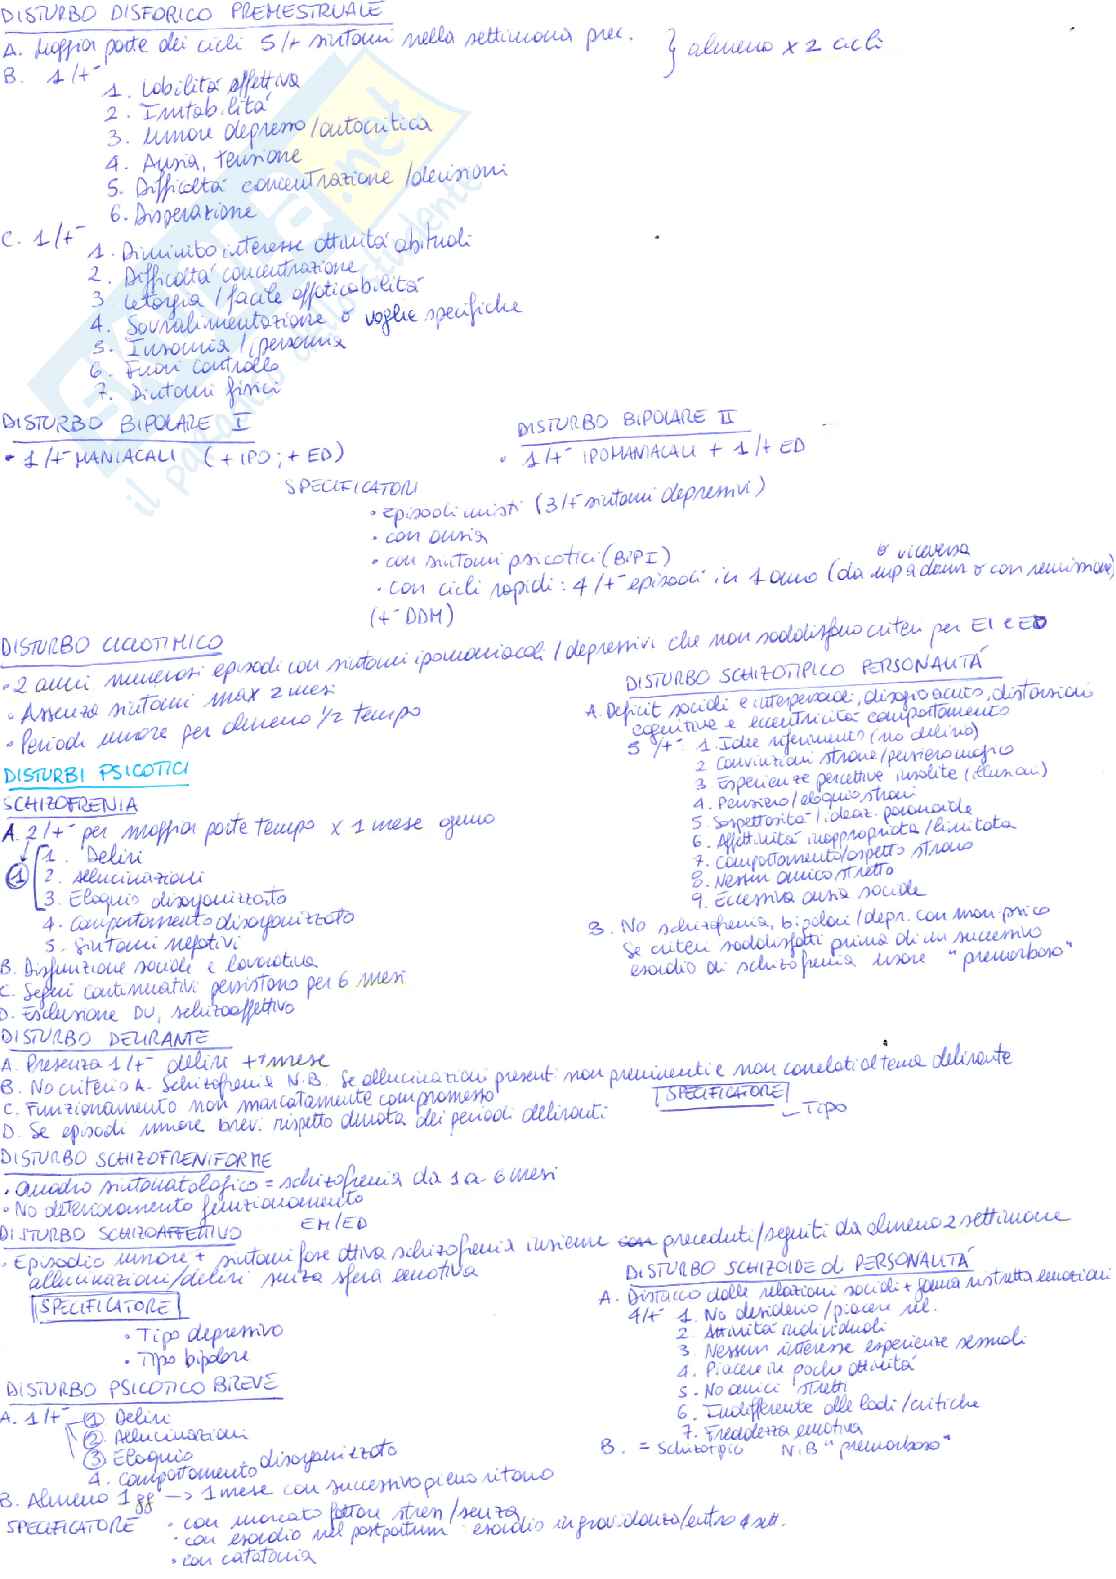 DISTURBO DISFORICO PREMESTRUALE
A. Maggior parte dei cicli 5/+ sintomi nella settimana prec. } almeno x 2 cicli
B. 1/+
1. Labilità affettiva
2. Irritabilità
3. Umore depresso/autocritica
4. Ansia, tensione
5. Difficoltà concentrazione/decisioni
6. Disperazione
C. 1/+
1. Diminuito interesse attività abituali
2. Difficoltà concentrazione
3 Letargia/facile affaticabilità
4. Sovralimentazione o voglie specifiche
5. Insonnia/ipersomnia
6. Fuori controllo
7. Sintomi fisici
DISTURBO BIPOLARE I
• 1/+ MANIACALI (+ IPO; + ED)
DISTURBO BIPOLARE II
• 1/+ IPOMANIACALI + 1/+ ED
SPECIFICATORI
• Episodi misti (3/+ sintomi depressivi)
• con ansia
• con sintomi psicotici (BIP I)
• con cicli rapidi: 4/+ episodi in 1 anno (da up a down o viceversa o con remissione)
(+ DDM)
DISTURBO CICLOTIMICO
• 2 anni numerosi episodi con sintomi ipomaniacali/depressivi che non soddisfano criteri per EI e ED
• Assenza sintomi max 2 mesi
• Periodi umore per almeno 1/2 tempo
DISTURBO SCHIZOTIPICO PERSONALITÁ
A. Deficit sociali e interpersonali, disagio acuto, distorsioni
cognitive e eccentricità comportamento
5/+ 1. Idee riferimento (no delirio)
2 Convinzioni strane/pensiero magico
3 Esperienze percettive insolite (illusioni)
4. Pensiero/eloquio strani
5. Sospettosità/ideaz. paranoide
6. Affettività inappropriata/limitata
7. Comportamento/aspetto strano
8. Nessun amico stretto
9. Eccessiva ansia sociale
B. No schizofrenia, bipolari/depr. con man. psico
Se criteri soddisfatti prima di un successivo
esordio di schizofrenia usare "premorboso"
DISTURBI PSICOTICI
SCHIZOFRENIA
A. 2/+ per maggior parte tempo x 1 mese ognuno
1 1. Deliri
2. Allucinazioni
3. Eloquio disorganizzato
4. Comportamento disorganizzato
5. Sintomi negativi
B. Disfunzione sociale e lavorativa
C. Segni continuativi persistono per 6 mesi
D. Esclusione DU, schizoaffettivo
DISTURBO DELIRANTE
A. Presenza 1/+ deliri + 1 mese
B. No criterio A. Schizofrenia N.B. Se allucinazioni presenti non preminenti e non correlati al tema delirante
C. Funzionamento non marcatamente compromesso
D. Se episodi umore brevi rispetto durata dei periodi deliranti
SPECIFICATORE
– Tipo
DISTURBO SCHIZOFRENIFORME
• Quadro sintomatologico = schizofrenia da 1 a 6 mesi
• No deterioramento funzionamento
DISTURBO SCHIZOAFFETTIVO
EM/ED
• Episodio umore + sintomi fase attiva schizofrenia insieme con preceduti/seguiti da almeno 2 settimane
allucinazioni/deliri senza sfera emotiva
SPECIFICATORE
• Tipo depressivo
• Tipo bipolare
DISTURBO SCHIZOIDE di PERSONALITÁ
A. Distacco dalle relazioni sociali + gamma ristretta emozioni
4/+ 1. No desiderio/piacere rel.
2 Attività individuali
3 Nessun interesse esperienze sessuali
4. Piacere in poche attività
5. No amici stretti
6. Indifferente alle lodi/critiche
7. Freddezza emotiva
B. = Schizotipico N.B "premorboso"
DISTURBO PSICOTICO BREVE
A. 1/+ 1 Deliri
2. Allucinazioni
3 Eloquio disorganizzato
4. Comportamento
B. Almeno 1 gg → 1 mese con successivo pieno ritorno
SPECIFICATORE • con marcato fattore stress/senza
• con esordio nel postpartum esordio in gravidanza/entro 4 sett.
• con catatonia